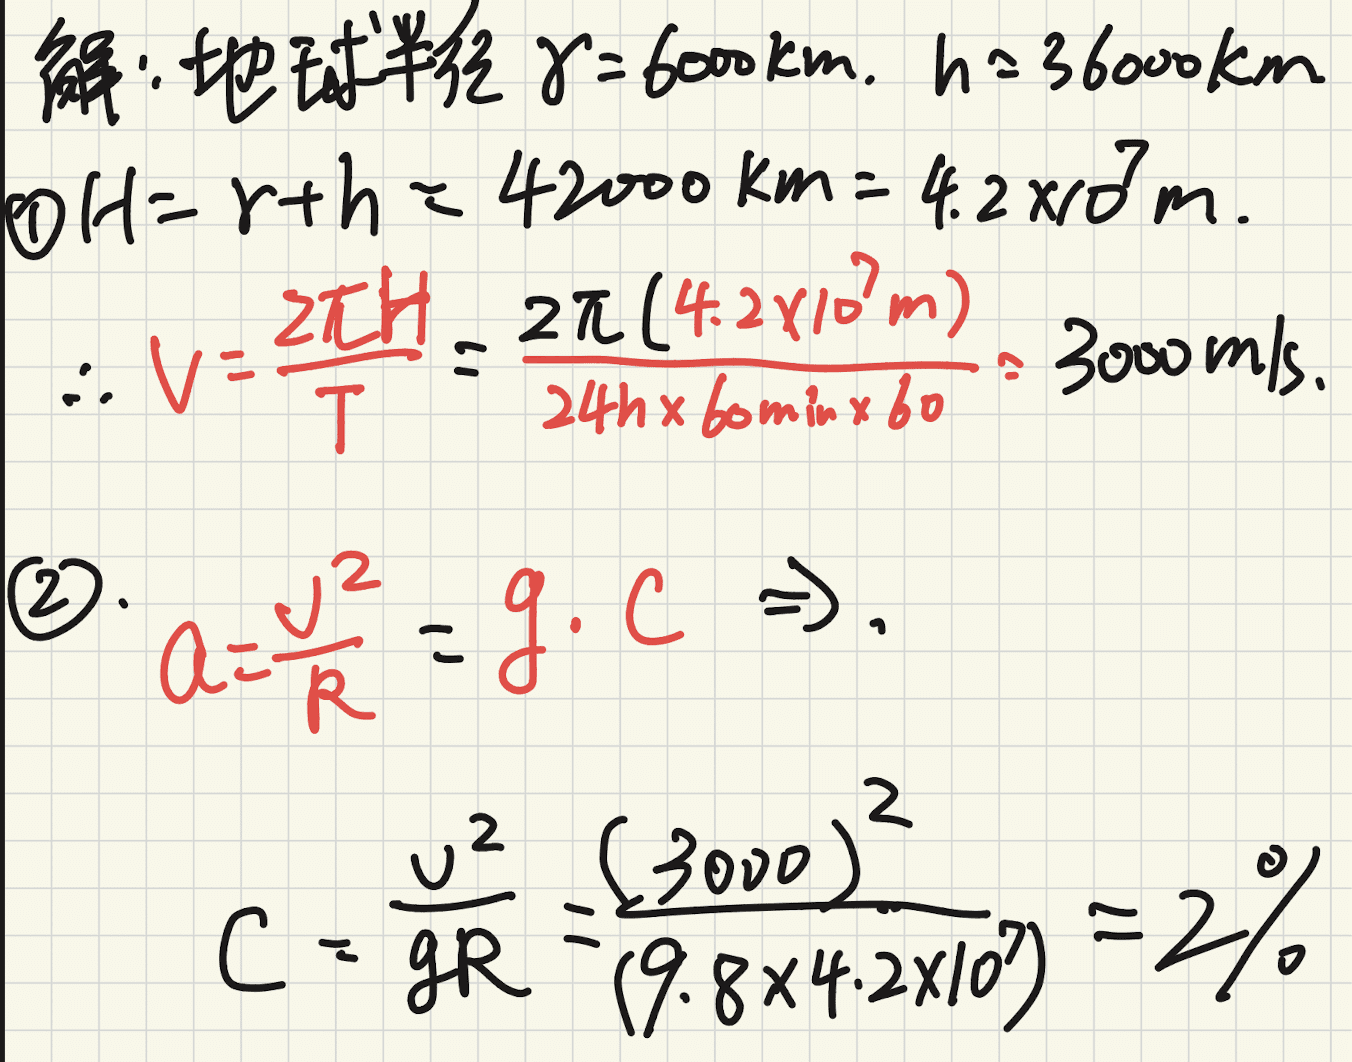 解:地球半径 r=6000km. h=36000km
① H=r+h=42000km=4.2×10⁷m.
∴ V=2πH/T=2π(4.2×10⁷m)/24h×60min×60=3000m/s.
②. a=v²/R=g·C⇒.
C=v²/gR=(3000)²/(9.8×4.2×10⁷)=2%